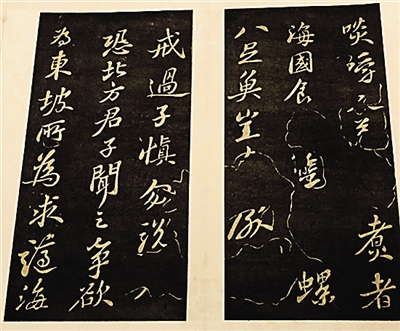 啖嚼 煮者
海國食蠏螺
八足魚豈
戒過子慎勿說
恐北方君子聞之争欲
為東坡所為求謫海